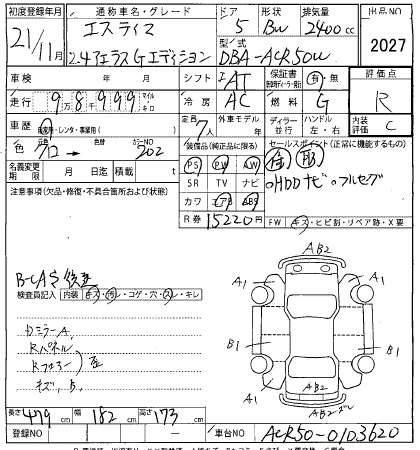 初度登録年月 通称車名・グレード ドア 形状 排気量 出品NO
21/11月 エスティマ 5 BW 2400cc
2.4アエラスGエディション 型式 DBA-ACR50W 2027
車検 年 月 日 シフト AT 保証書 有・無 評価点
走行 9万8千999 マイル キロ 冷房 AC 燃料 G R
車歴 自家用・レンタ・事業用( ) 定員 7人 外車モデル 年 ディーラー 並行 ハンドル 左・右 内装 C
色 クロ → 色替 カラーNO 202 装備品(純正品に限る) セールスポイント(正常に機能するもの)
名義変更期限 月 日迄 積載量 t PS PW AW
注意事項(欠品・修復・不具合箇所および状態) SR TV ナビ HDDナビ フルセグ
カワ エアB ABS
R券 15220円 FW キズ・ヒビ割・リペア跡・X要
B-CAS後送
検査員記入 内装 キズ・汚レ・コゲ・穴・スレ・キレ
Dミラー A
Rパネル
Rフロアー 歪
キズ、B
AB2
A1 A1
B1 B1
A1 A1
AB2
AB2
長さ 479cm 幅 182cm 高さ 173cm
登録NO 車台NO ACR50-0103620